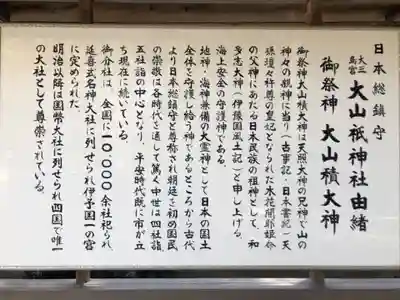 日本総鎮守
大三島宮 大山祇神社由緒
御祭神 大山積大神
御祭神大山積大神は天照大神の兄神で山の
神々の親神に当り（古事記・日本書記）天
孫瓊々杵尊の皇妃となられた木花開耶姫命
の父神にあたる日本民族の祖神として、和
多志大神（伊豫国風土記）と申し上げる。
海上安全の守護神である。
地神・海神兼備の大霊神として日本の国土
全体を守護し給う神であるところから古代
より日本総鎮守と尊称され朝廷を初め国民
の崇敬は各時代を通して篤く中世は四社詣
五社詣の中心となり、平安時代既に市が立
ち現在に続いている。
御分社は、全国に一〇、〇〇〇余社祀られ
延喜式名神大社に列せられ伊予国一の宮
に定められた。
明治以降は国幣大社に列せられ四国で唯一
の大社として尊崇されている。